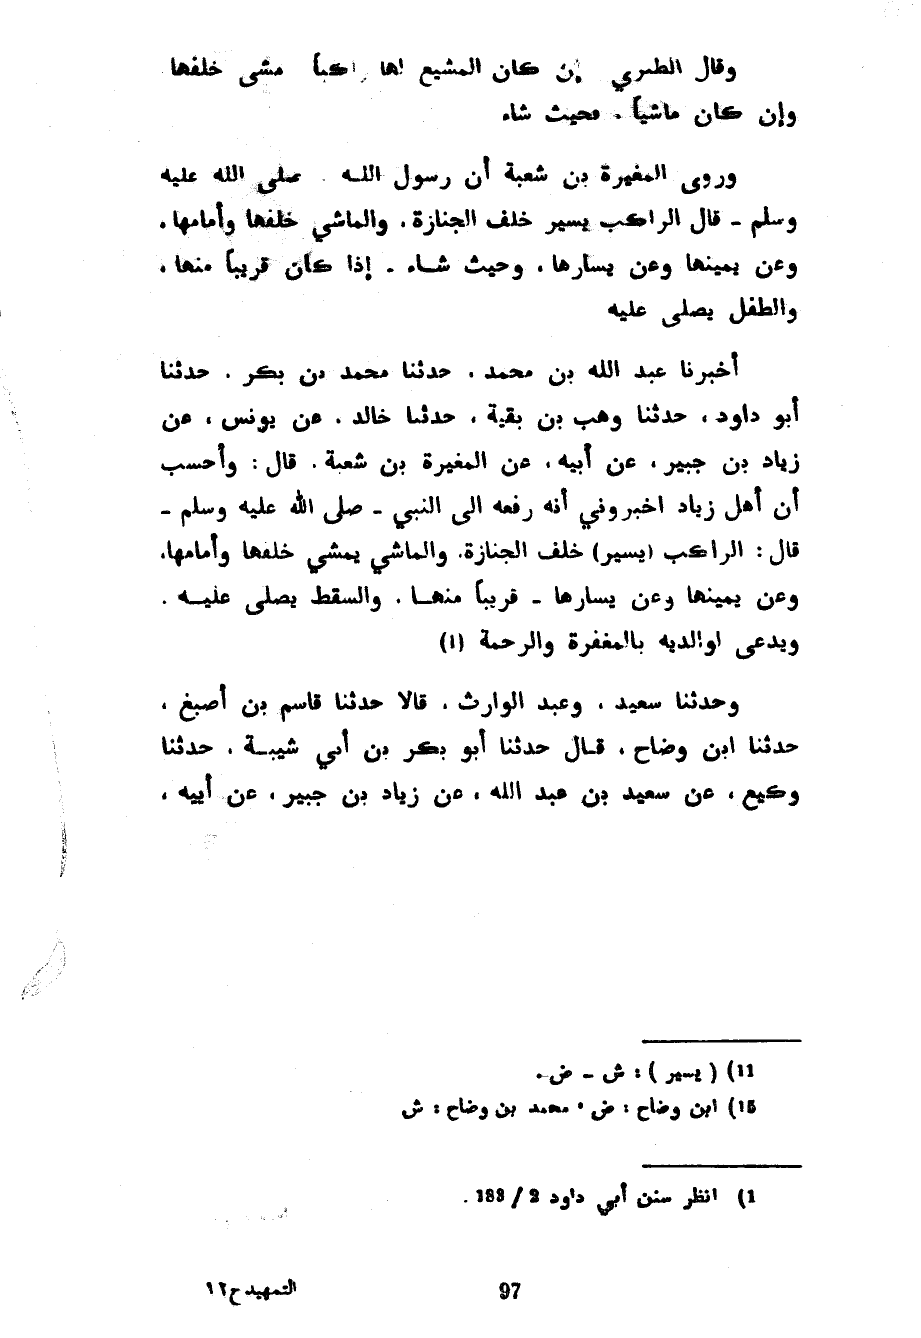 وقال الطبري إن كان المشيع لها راكباً مشى خلفها
وإن كان ماشياً ، فحيث شاء
وروى المغيرة بن شعبة أن رسول اللـه صلى الله عليه
وسلم - قال الراكب يسير خلف الجنازة ، والماشي خلفها وأمامها ،
وعن يمينها وعن يسارها ، وحيث شـاء - إذا كان قريباً منها ،
والطفل يصلى عليه
أخبرنا عبد الله بن محمد ، حدثنا محمد بن بكر ، حدثنا
أبو داود ، حدثنا وهب بن بقية ، حدثنا خالد ، عن يونس ، عن
زياد بن جبير ، عن أبيه ، عن المغيرة بن شعبة ، قال : وأحسب
أن أهل زياد اخبروني أنه رفعه الى النبي - صلى الله عليه وسلم -
قال : الراكب (يسير) خلف الجنازة، والماشي يمشي خلفها وأمامها،
وعن يمينها وعن يسارها - قريباً منهـا ، والسقط يصلى عليـه ،
ويدعى لوالديه بالمغفرة والرحمة (١)
وحدثنا سعيد ، وعبد الوارث ، قالا حدثنا قاسم بن أصبغ ،
حدثنا ابن وضاح ، قـال حدثنا أبو بكر بن أبي شيبـة ، حدثنا
وكيع ، عن سعيد بن عبد الله ، عن زياد بن جبير ، عن أبيه ،
11) ( يسير ) : ش - ض.
15) ابن وضاح : ض ، محمد بن وضاح : ش
1) انظر سنن أبي داود 2 / 183 .
97
التمهيد ج١٢